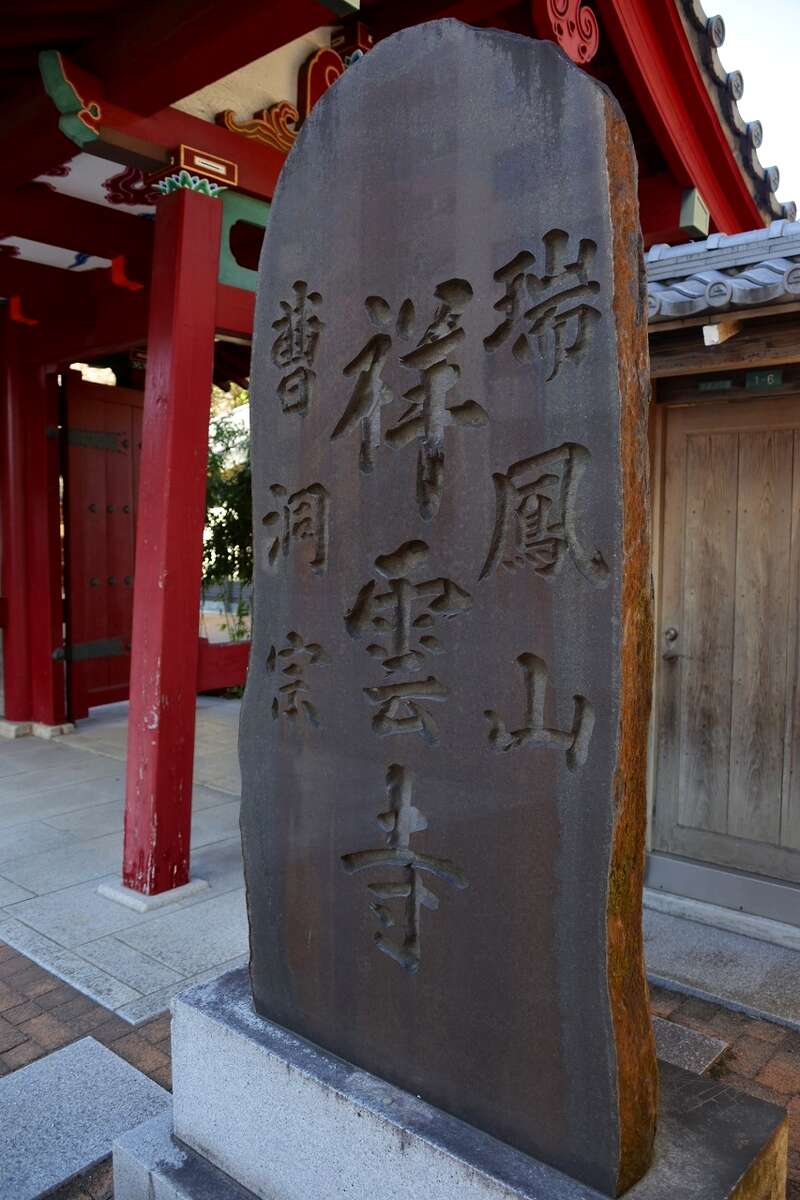 瑞鳳山
祥雲寺
曹洞宗
1-6